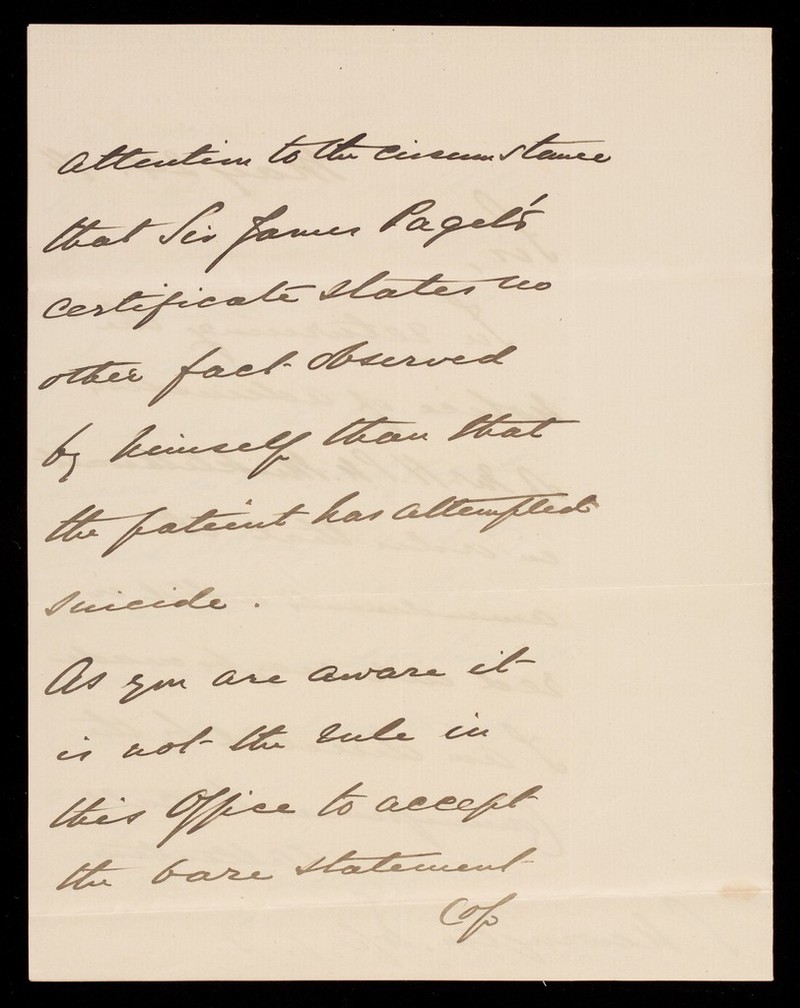 attention to the circumstance
that Sir James Paget's
certificate states no
other fact observed
by himself than that
the patient has attempted
suicide.
As you are aware it
is not the rule in
this Office to accept
the bare statement